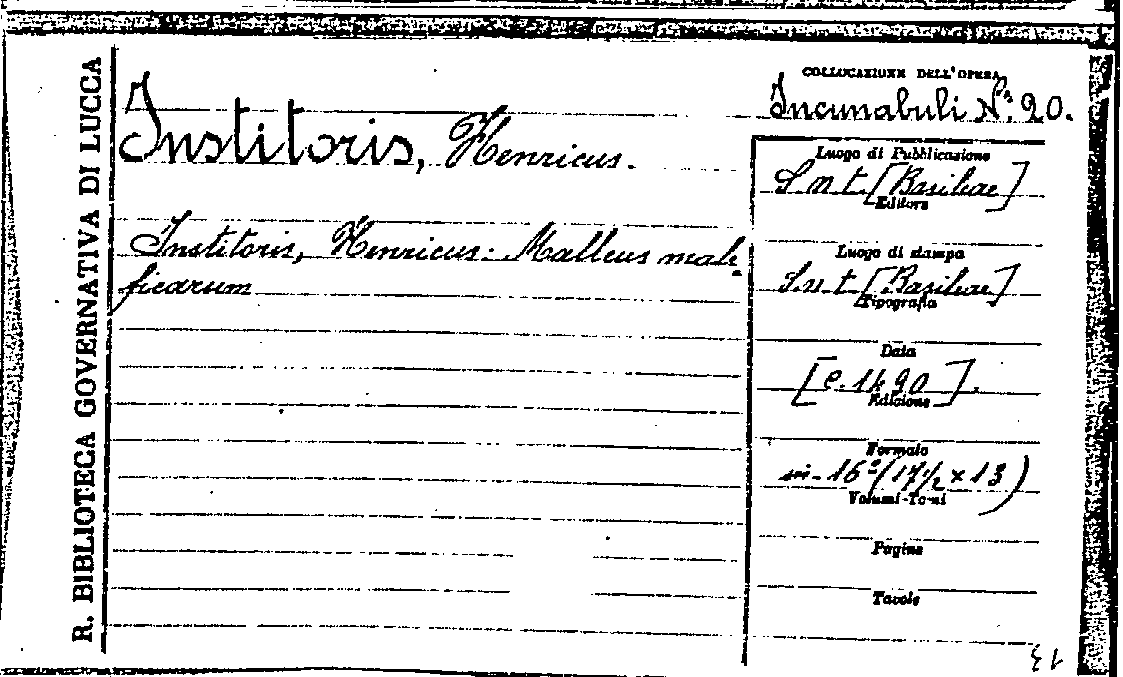 R. BIBLIOTECA GOVERNATIVA DI LUCCA
Institoris, Henricus.
Institoris, Henricus: Malleus male-
ficarum
COLLOCAZIONE DELL'OPERA
Incunabuli N.º 20.
Luogo di Pubblicazione
S. n. t. [Basileae]
Editore
Luogo di stampa
S. n. t. [Basileae]
Tipografia
Data
[c. 1490].
Edizione
Formato
in-16º (17½ x 13)
Volumi-Tomi
Pagine
Tavole
13